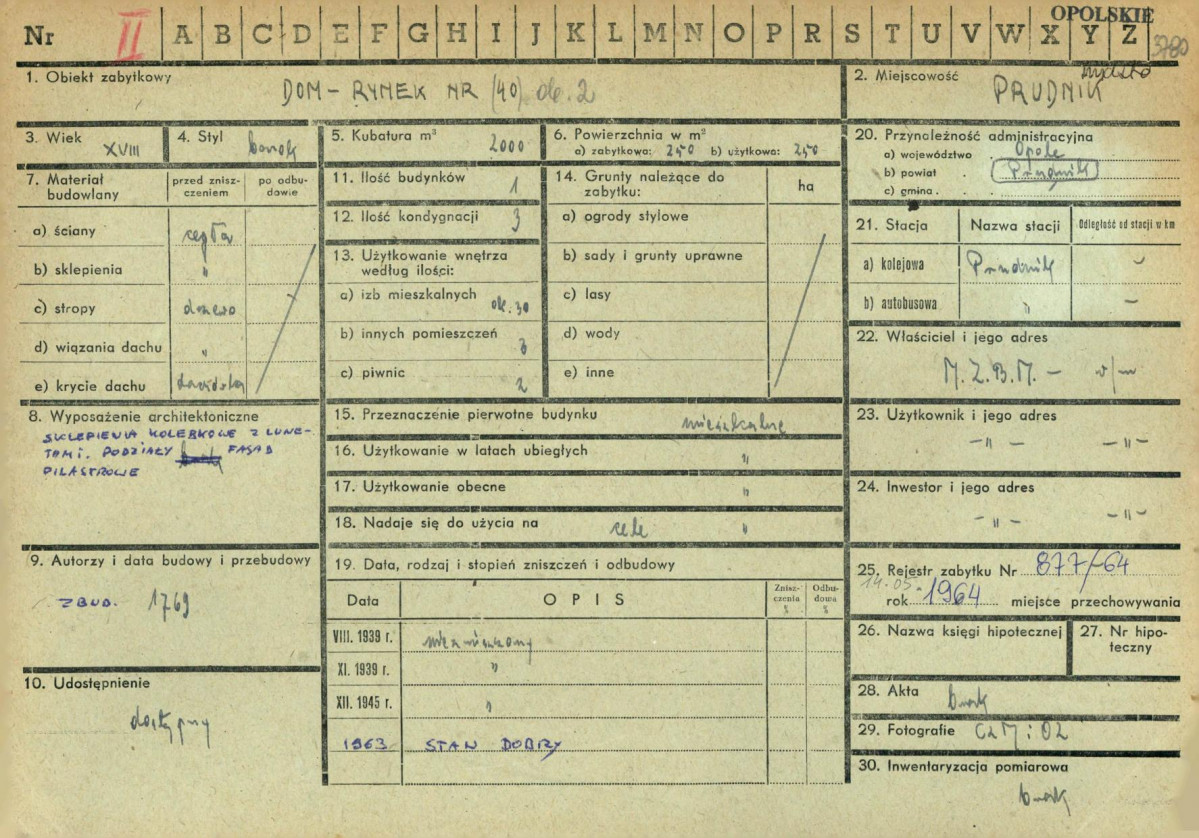 OPOLSKIE
Nr II A B C D E F G H I J K L M N O P R S T U V W X Y Z 3780
1. Obiekt zabytkowy
DOM – RYNEK NR (40) ok. 2
2. Miejscowość
PRUDNIK
3. Wiek XVIII
4. Styl barok
5. Kubatura m³ 2000
6. Powierzchnia w m²
a) zabytkowa: 250 b) użytkowa: 250
7. Materiał budowlany
przed zniszczeniem
po odbudowie
a) ściany cegła
b) sklepienia "
c) stropy drzewo
d) wiązania dachu "
e) krycie dachu dachówka
8. Wyposażenie architektoniczne
SKLEPIENIA KOLEBKOWE Z LUNE-
TAMI. PODZIAŁY FASAD
PILASTROWE
9. Autorzy i data budowy i przebudowy
ZBUD. 1769
10. Udostępnienie
dostępny
11. Ilość budynków 1
12. Ilość kondygnacji 3
13. Użytkowanie wnętrza
według ilości:
a) izb mieszkalnych ok. 30
b) innych pomieszczeń 3
c) piwnic 2
14. Grunty należące do
zabytku:
ha
a) ogrody stylowe
b) sady i grunty uprawne
c) lasy
d) wody
e) inne
15. Przeznaczenie pierwotne budynku mieszkalne
16. Użytkowanie w latach ubiegłych "
17. Użytkowanie obecne "
18. Nadaje się do użycia na cele "
19. Data, rodzaj i stopień zniszczeń i odbudowy
Data OPIS Zniszczenia % Odbudowa %
VIII. 1939 r. niezniszczony
XI. 1939 r. "
XII. 1945 r. "
1963 STAN DOBRY
20. Przynależność administracyjna
a) województwo Opole
b) powiat Prudnik
c) gmina
21. Stacja Nazwa stacji Odległość od stacji w km
a) kolejowa Prudnik –
b) autobusowa " –
22. Właściciel i jego adres
M.Z.B.M. – w/m
23. Użytkownik i jego adres
–"– –"–
24. Inwestor i jego adres
–"– –"–
25. Rejestr zabytku Nr 877/64
14.05.
rok 1964 miejsce przechowywania
26. Nazwa księgi hipotecznej
27. Nr hipo-
teczny
28. Akta brak
29. Fotografie CZM i OZ
30. Inwentaryzacja pomiarowa
brak